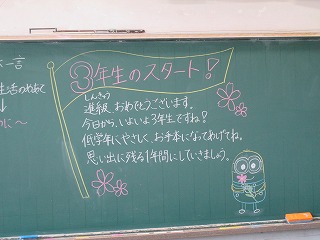 一言
生活のめあて
↓
に～
3年生のスタート!
しんきゅう
進級、おめでとうございます。
今日から、いよいよ3年生ですね!
低学年にやさしく、お手本になってあげてね。
思い出に残る1年間にしていきましょう。